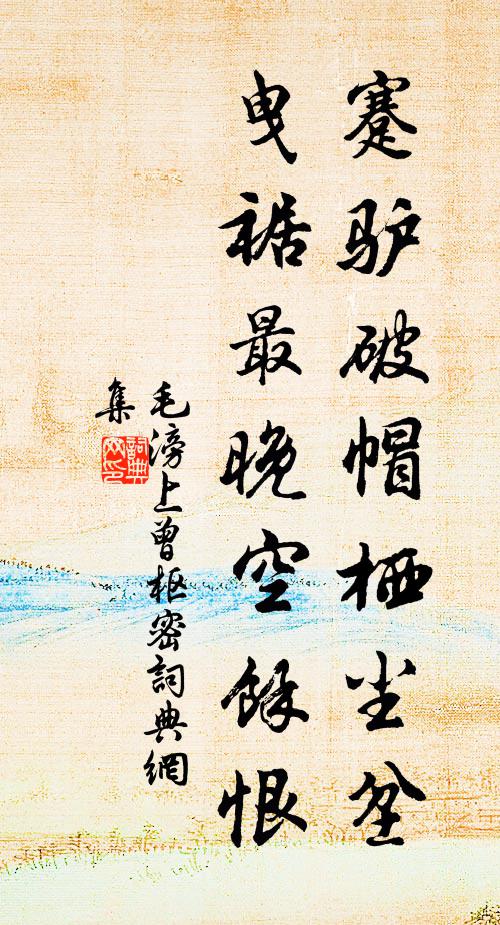 蹇驴破帽栖尘坌
曳裾最晚空馀恨
毛滂上曾枢密詞典網
集
詞典网印